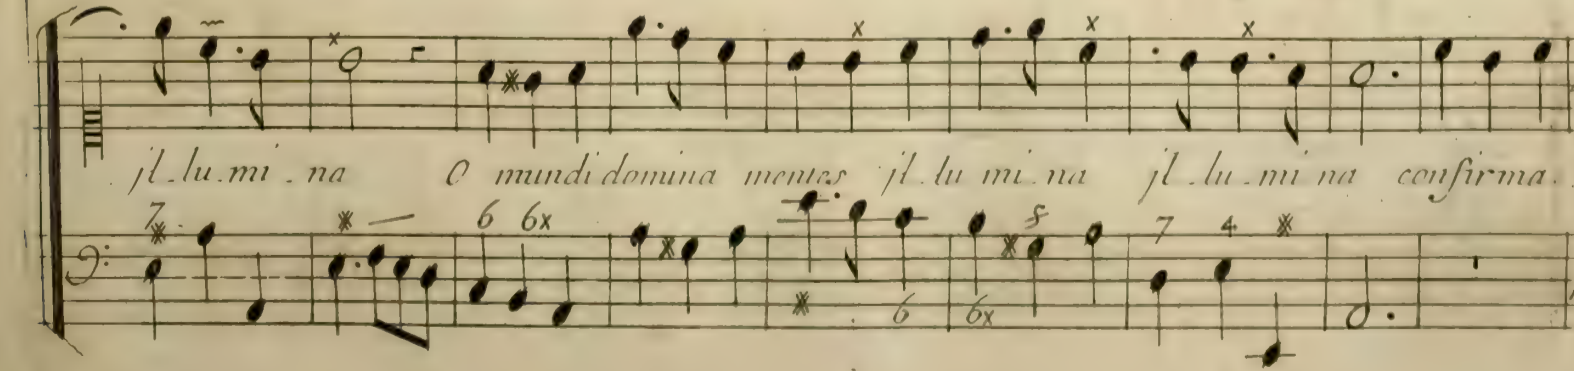 jl-lu-mi-na O mundi domina mentes jl-lu mi-na jl-lu-mi na confirma.
7 6 6x 5 7 4
6 6x